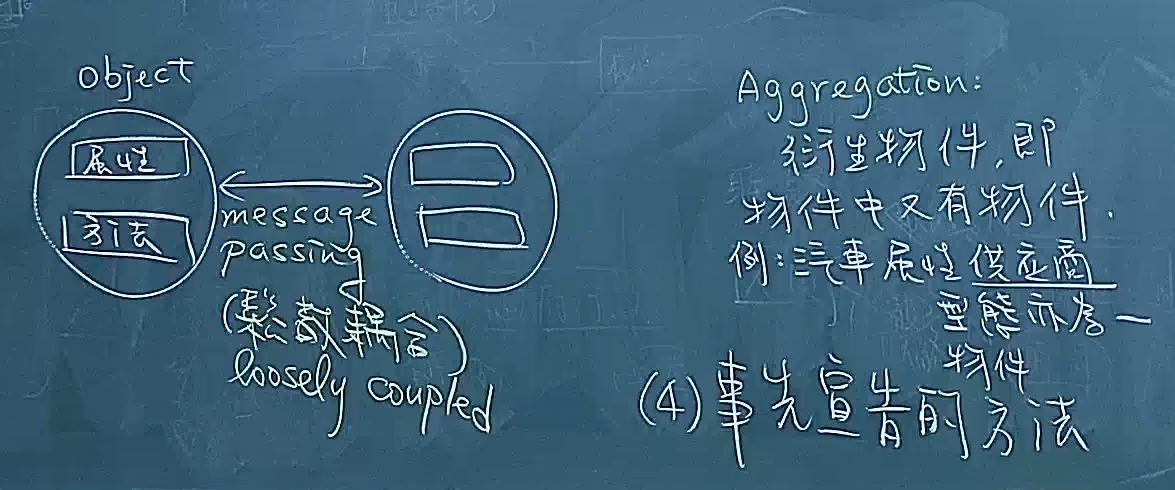 object
属性
方法
message
passing
(鬆散耦合)
loosely coupled
Aggregation:
衍生物件,即
物件中又有物件.
例:汽車属性供应商
型態亦為一
物件
(4)事先宣告的方法